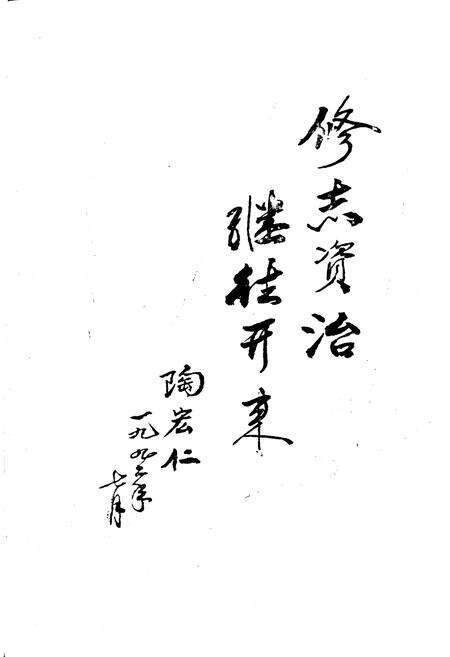 修志資治
继往开来
陶宏仁
一九九三年
七月